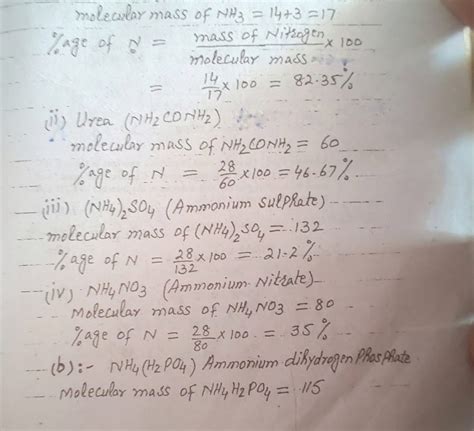 molecular mass of NH3 = 14+3 = 17
%age of N = mass of Nitrogen × 100
molecular mass
= 14/17 × 100 = 82.35%
(ii) Urea (NH2CONH2)
molecular mass of NH2CONH2 = 60
%age of N = 28/60 × 100 = 46.67%
(iii) (NH4)2SO4 (Ammonium Sulphate)
molecular mass of (NH4)2SO4 = 132
%age of N = 28/132 × 100 = 21.2%
(iv) NH4NO3 (Ammonium Nitrate)
Molecular mass of NH4NO3 = 80
%age of N = 28/80 × 100 = 35%
(b) :- NH4(H2PO4) Ammonium dihydrogen Phosphate
Molecular mass of NH4H2PO4 = 115